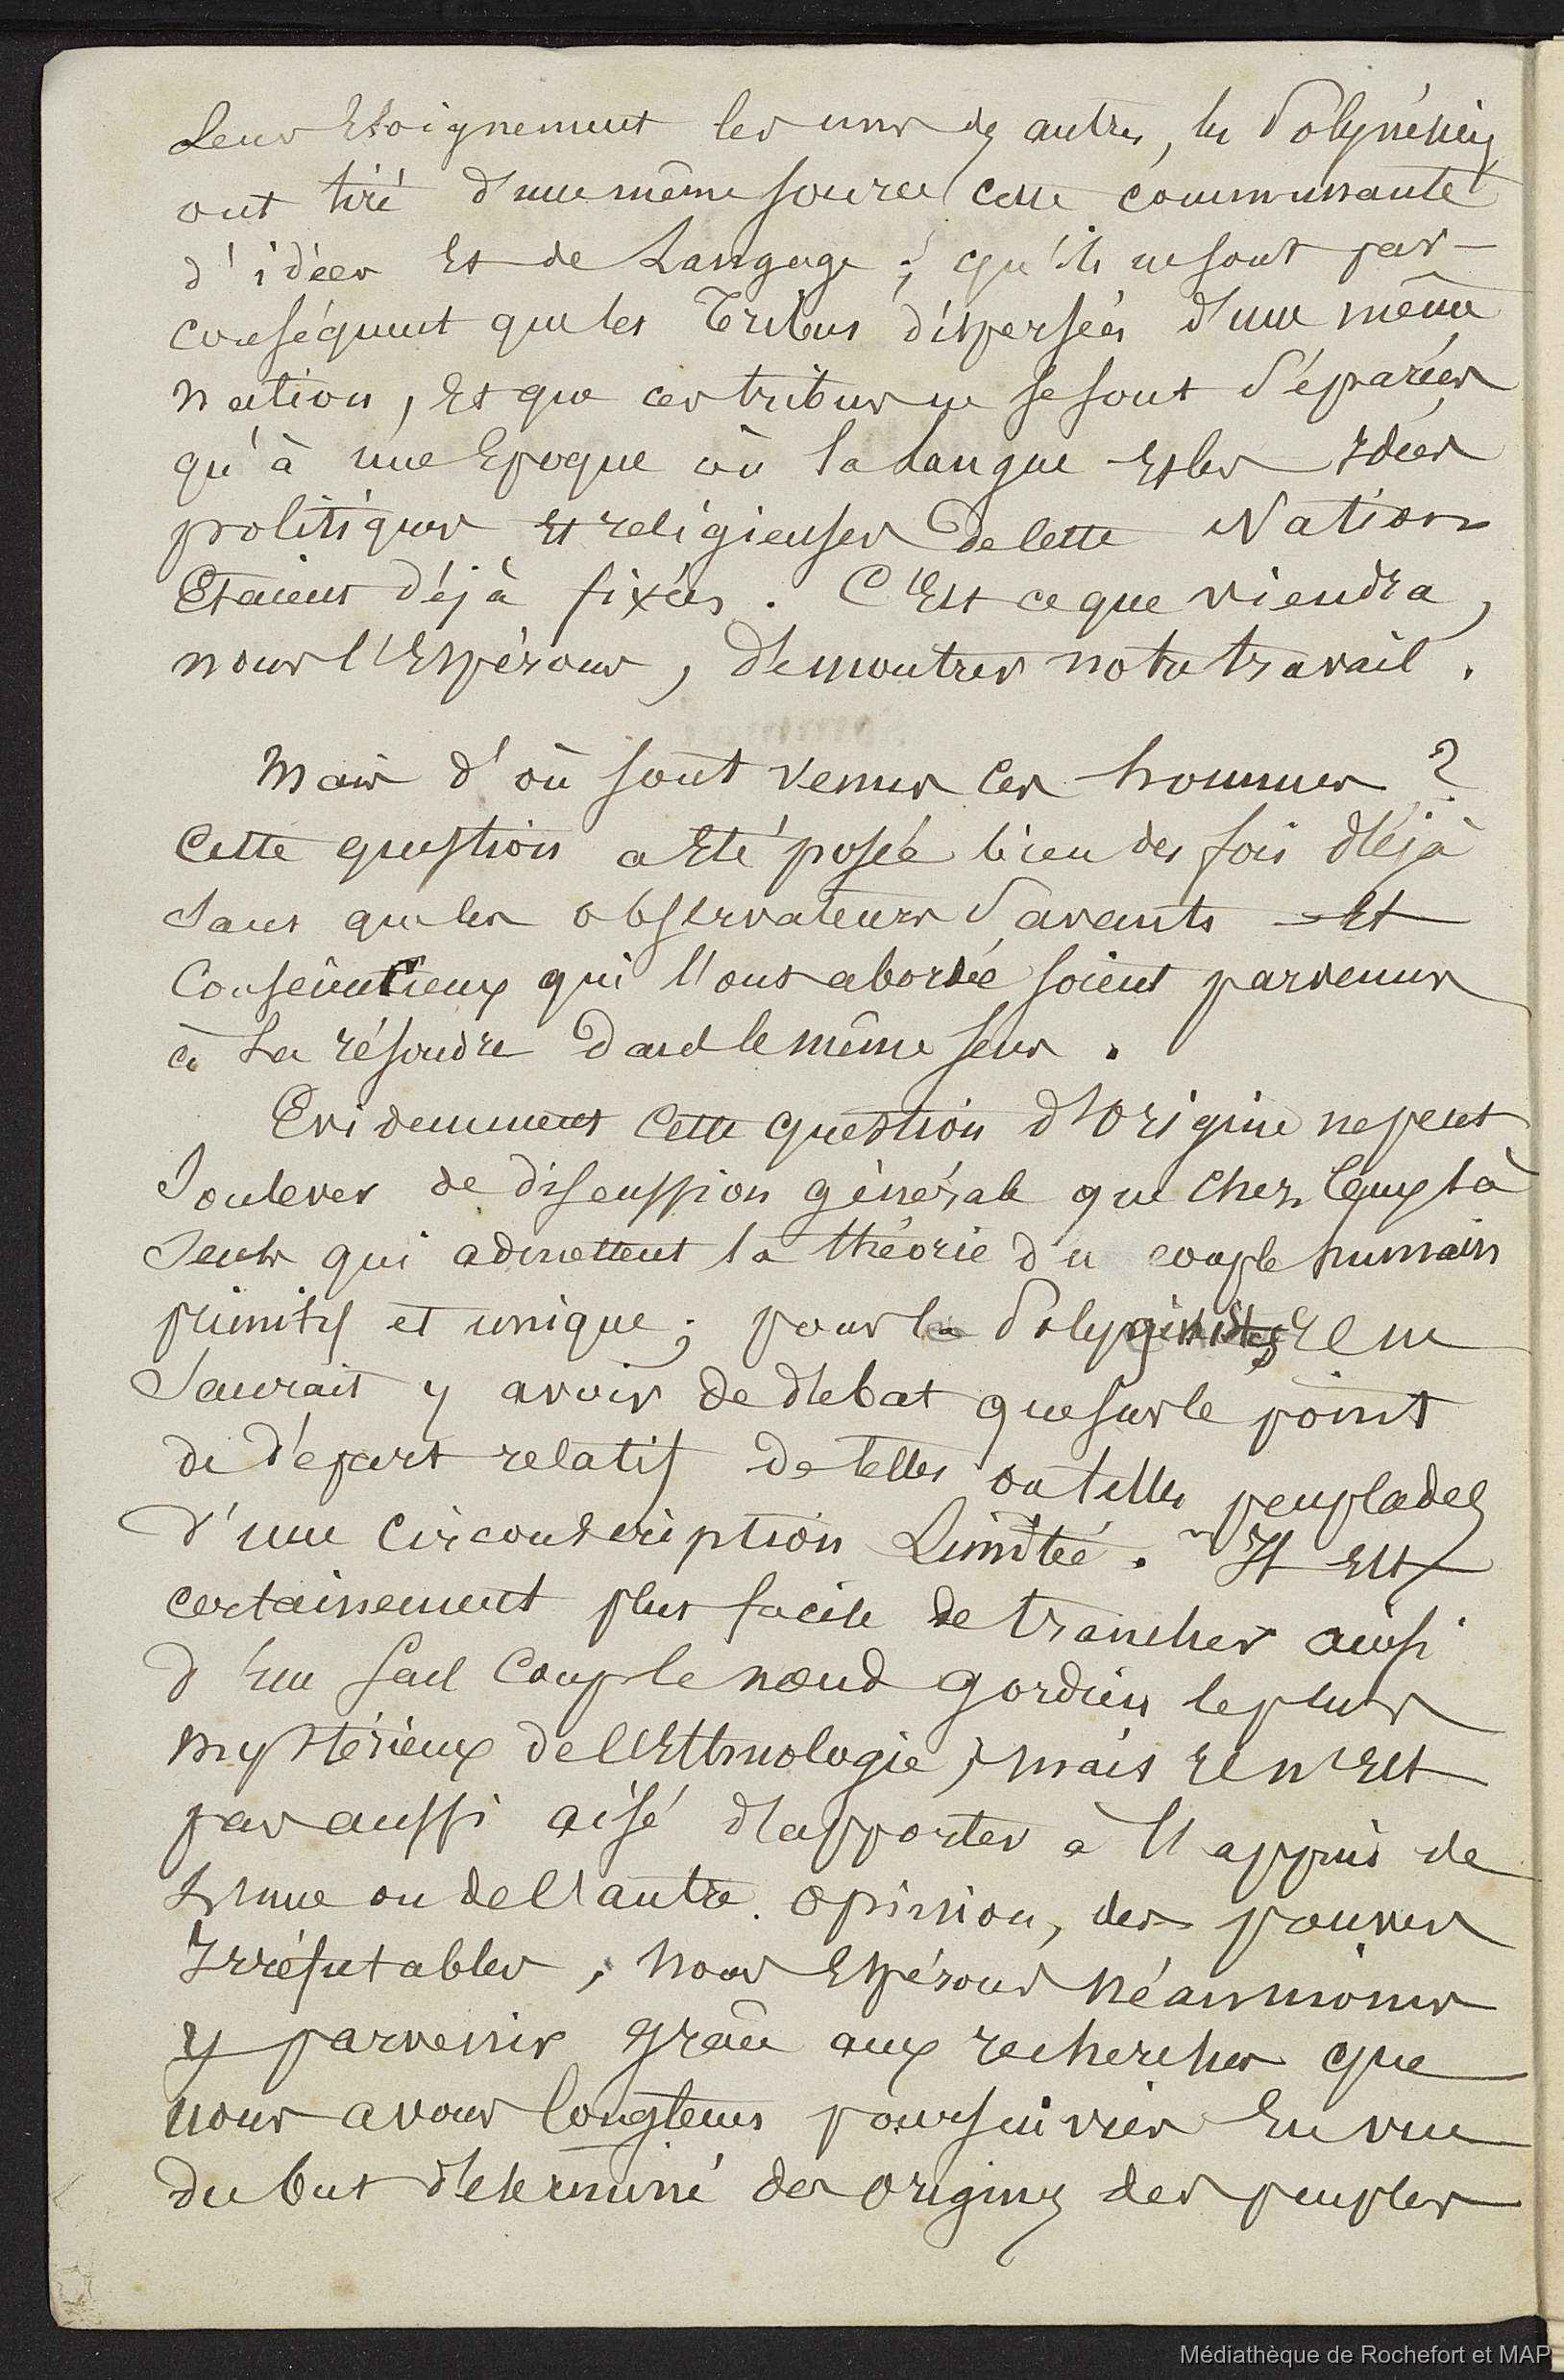 Leur Eloignement les uns des autres, les Polynésiens
ont tiré d'une même source cette communauté
d'idées Et de Langage ; qu'ils ne sont par-
conséquent que les Tribus dispersées d'une même
Nation, Et que ces tribus ne se sont séparées
qu'à une Epoque où la Langue Et les Idées
politiques Et religieuses de cette Nation
Etaient déjà fixées. C'Est ce que viendra,
nous l'Espérons, démontrer notre travail.
Mais d'où sont venus ces hommes ?
Cette question a Eté posée bien des fois déjà
sans que les observateurs Savants Et
Consciencieux qui l'ont abordée soient parvenus
à La résoudre dans le même sens.
Evidemment Cette question d'Origine ne peut
Soulever de discussion générale que chez Ceux là
Seuls qui admettent la théorie du couple humain
primitif et unique ; pour les Polygénistes Il ne
Saurait y avoir de débat que sur le point
de départ relatif de telles ou telles peuplades
d'une Circonscription Limitée. Il Est
certainement plus facile de trancher ainsi
d'Un Seul Coup le nœud gordien le plus
mystérieux de l'Ethnologie ; mais Il n'Est
pas aussi aisé d'apporter à l'appui de
L'une ou de l'autre opinion, des preuves
Irréfutables ; Nous Espérons Néanmoins
y parvenir grâce aux recherches que
nous avons longtems poursuivies En vue
du but déterminé des origines des peuples
Médiathèque de Rochefort et MAP